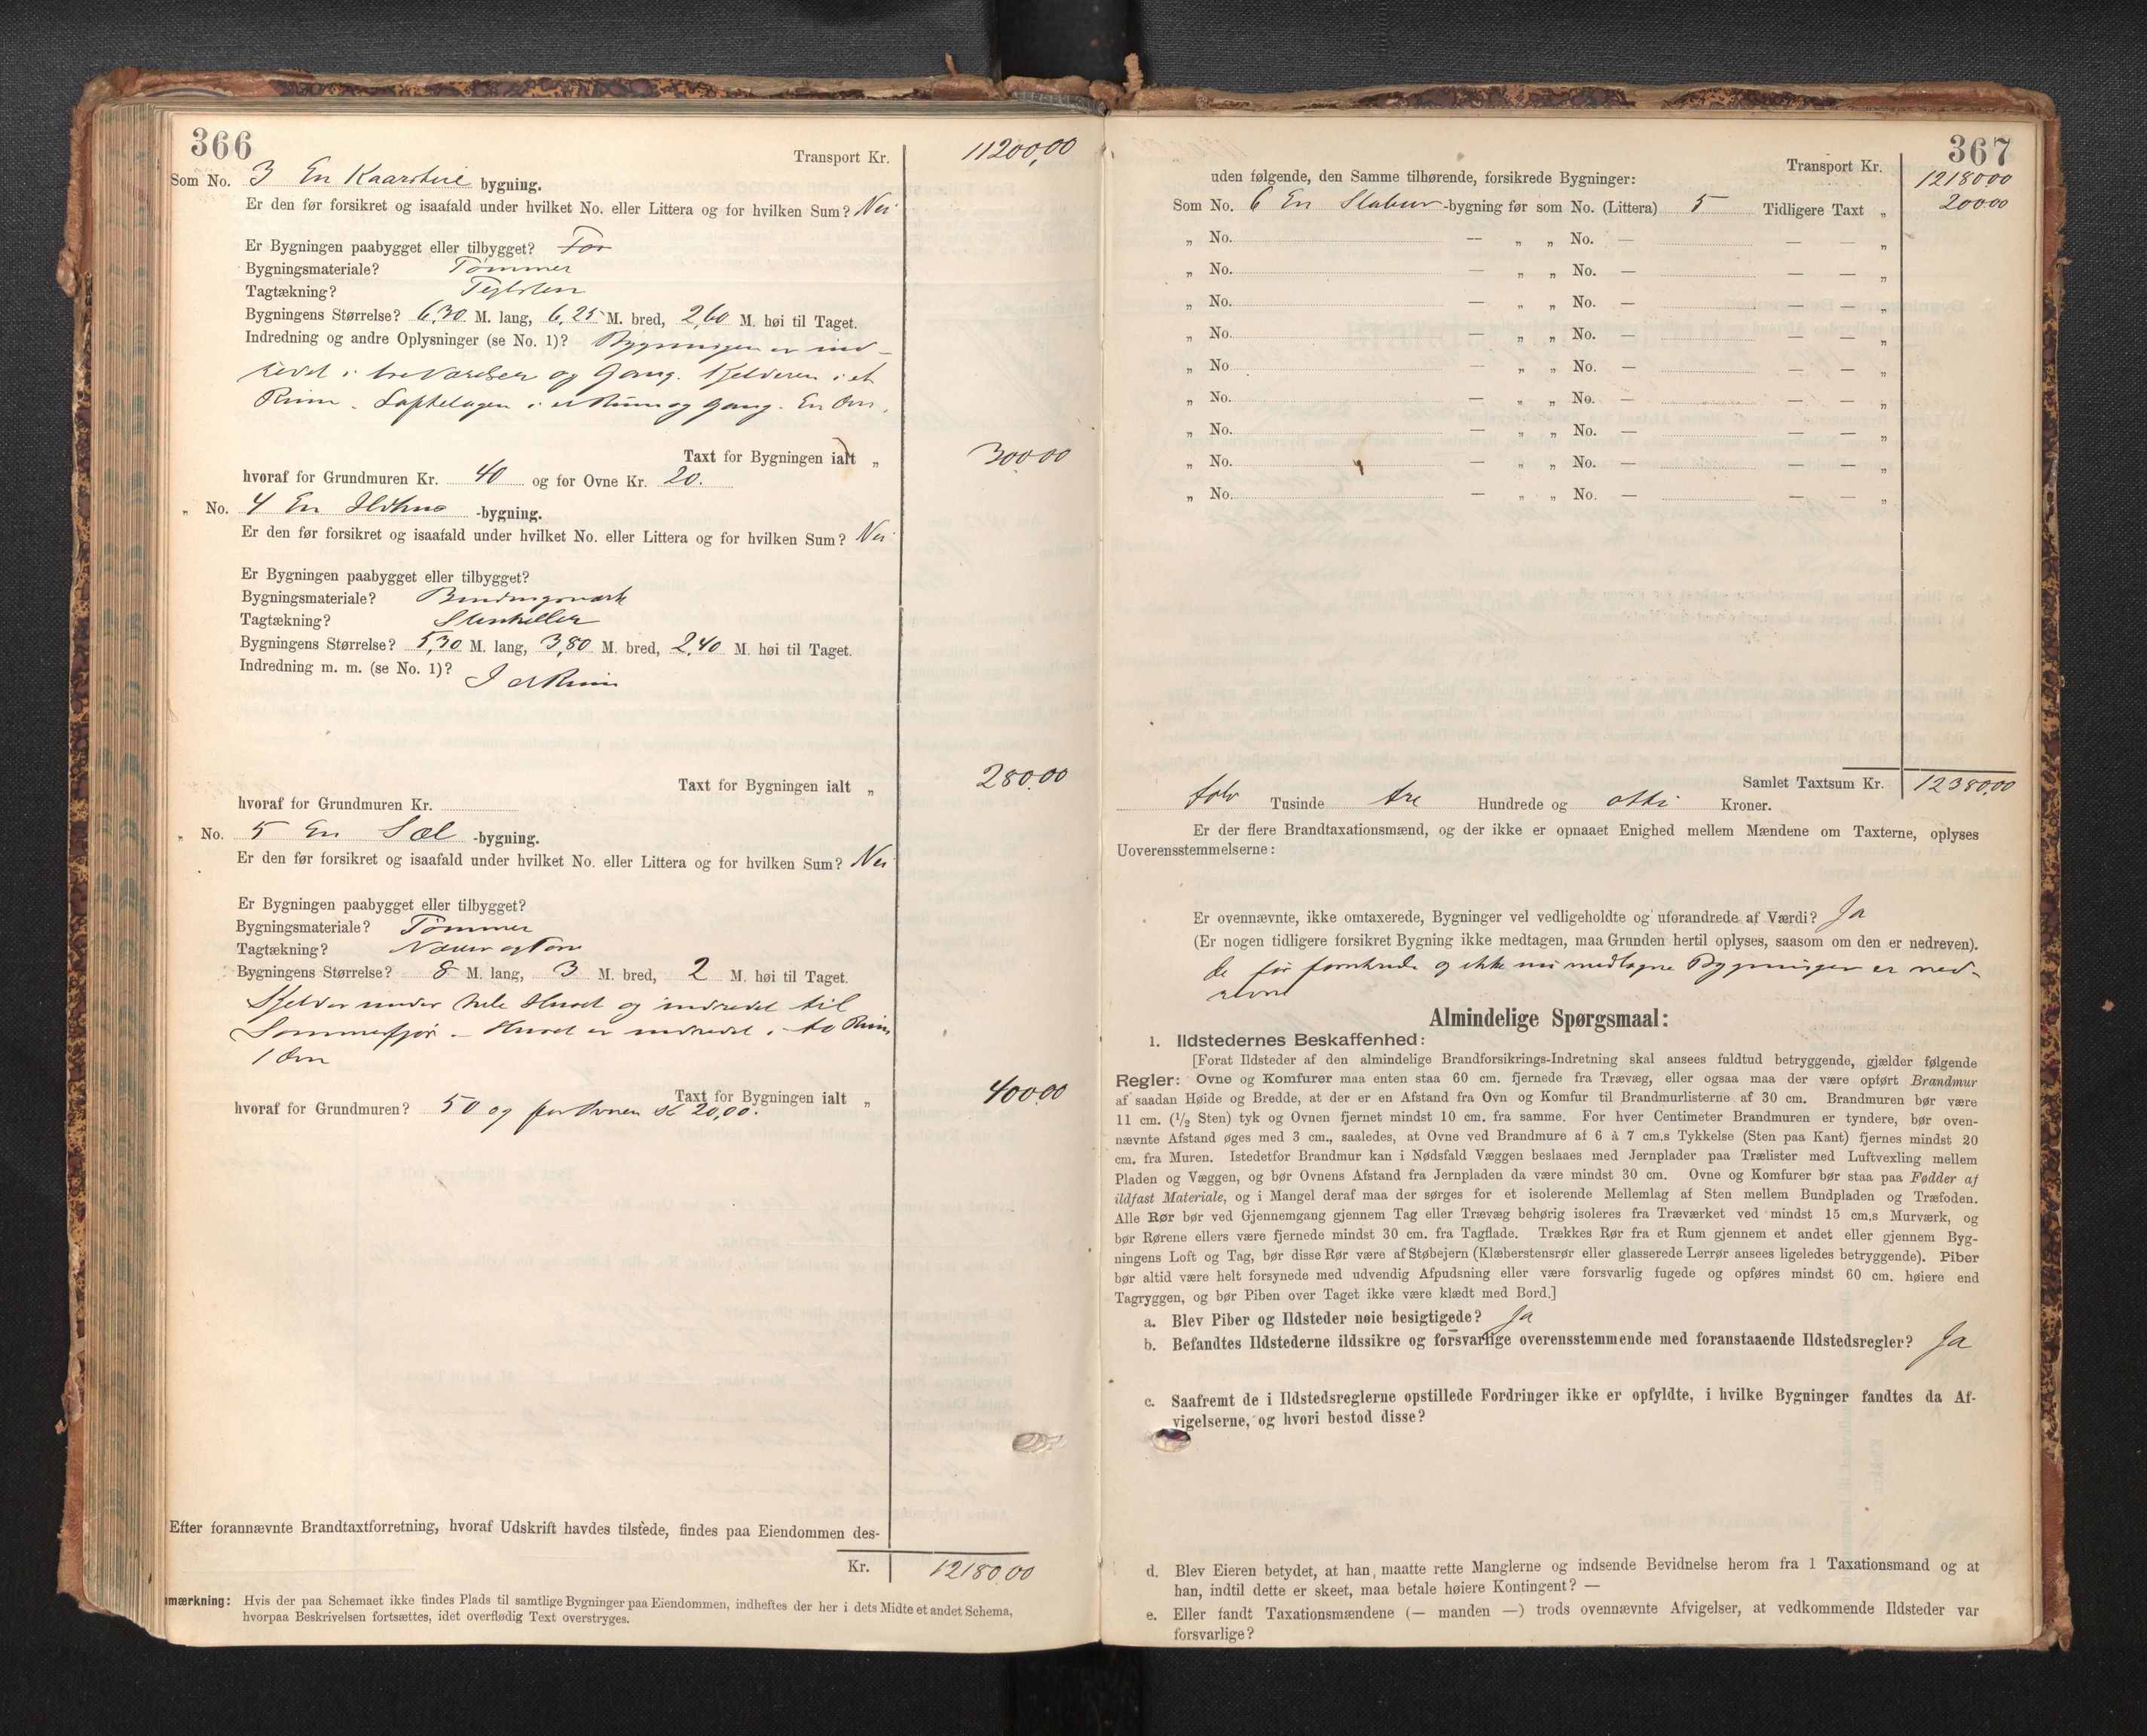 366
Transport Kr. 11200,00
Som No. 3 En Kaarstue bygning.
Er den før forsikret og isaafald under hvilket No. eller Littera og for hvilken Sum? Nei
Er Bygningen paabygget eller tilbygget?
Bygningsmateriale? Tømmer
Tagtækning? Teglsten
Bygningens Størrelse? 6,30 M. lang, 6,25 M. bred, 2,60 M. høi til Taget.
Indredning og andre Oplysninger (se No. 1)? Bygningen er ind-
redet i tre Værelser og Gang. Kjelderen i et
Rum. Loftetagen i et Rum og Gang. En Ovn.
Taxt for Bygningen ialt „ 300.00
hvoraf for Grundmuren Kr. 40 og for Ovne Kr. 20.
„ No. 4 En Ildhus -bygning.
Er den før forsikret og isaafald under hvilket No. eller Littera og for hvilken Sum? Nei
Er Bygningen paabygget eller tilbygget?
Bygningsmateriale? Bindingsværk
Tagtækning? Stenheller
Bygningens Størrelse? 5,30 M. lang, 3,80 M. bred, 2,40 M. høi til Taget.
Indredning m. m. (se No. 1)? I et Rum
Taxt for Bygningen ialt „ 280.00
hvoraf for Grundmuren Kr.
„ No. 5 En Sæl -bygning.
Er den før forsikret og isaafald under hvilket No. eller Littera og for hvilken Sum? Nei
Er Bygningen paabygget eller tilbygget?
Bygningsmateriale? Tømmer
Tagtækning? Næver og Torv
Bygningens Størrelse? 8 M. lang, 3 M. bred, 2 M. høi til Taget.
Kjelder under hele Huset og indredet til
Sommerfjøs. - Huset er indredet i to Rum
1 Ovn
Taxt for Bygningen ialt „ 400.00
hvoraf for Grundmuren? 50 og for Ovnen Kr 20,00.
Efter forannævnte Brandtaxtforretning, hvoraf Udskrift havdes tilstede, findes paa Eiendommen des-
Kr. 12180.00
mærkning: Hvis der paa Schemaet ikke findes Plads til samtlige Bygninger paa Eiendommen, indheftes der her i dets Midte et andet Schema,
hvorpaa Beskrivelsen fortsættes, idet overflødig Text overstryges.
367
Transport Kr. 12180.00
uden følgende, den Samme tilhørende, forsikrede Bygninger:
Som No. 6 En Stabur -bygning før som No. (Littera) 5 Tidligere Taxt „ 200.00
„ No. — „ „ No. — — — „
„ No. — „ „ No. — — — „
„ No. — „ „ No. — — — „
„ No. — „ „ No. — — — „
„ No. — „ „ No. — — — „
„ No. — „ „ No. — — — „
„ No. — „ „ No. — — — „
„ No. — „ „ No. — — — „
„ No. — „ „ No. — — — „
Samlet Taxtsum Kr. 12380,00
tolv Tusinde tre Hundrede og otti Kroner.
Er der flere Brandtaxationsmænd, og der ikke er opnaaet Enighed mellem Mændene om Taxterne, oplyses
Uoverensstemmelserne:
Er ovennævnte, ikke omtaxerede, Bygninger vel vedligeholdte og uforandrede af Værdi? Ja
(Er nogen tidligere forsikret Bygning ikke medtagen, maa Grunden hertil oplyses, saasom om den er nedreven).
de før forsikrede og ikke nu medtagne Bygninger er ned-
revne
Almindelige Spørgsmaal:
1. Ildstedernes Beskaffenhed:
[Forat Ildsteder af den almindelige Brandforsikrings-Indretning skal ansees fuldtud betryggende, gjælder følgende
Regler: Ovne og Komfurer maa enten staa 60 cm. fjernede fra Trævæg, eller ogsaa maa der være opført Brandmur
af saadan Høide og Bredde, at der er en Afstand fra Ovn og Komfur til Brandmurlisterne af 30 cm. Brandmuren bør være
11 cm. (1/2 Sten) tyk og Ovnen fjernet mindst 10 cm. fra samme. For hver Centimeter Brandmuren er tyndere, bør oven-
nævnte Afstand øges med 3 cm., saaledes, at Ovne ved Brandmure af 6 à 7 cm.s Tykkelse (Sten paa Kant) fjernes mindst 20
cm. fra Muren. Istedetfor Brandmur kan i Nødsfald Væggen beslaaes med Jernplader paa Trælister med Luftvexling mellem
Pladen og Væggen, og bør Ovnens Afstand fra Jernpladen da være mindst 30 cm. Ovne og Komfurer bør staa paa Fødder af
ildfast Materiale, og i Mangel deraf maa der sørges for et isolerende Mellemlag af Sten mellem Bundpladen og Træfoden.
Alle Rør bør ved Gjennemgang gjennem Tag eller Trævæg behørig isoleres fra Træværket ved mindst 15 cm.s Murværk, og
bør Rørene ellers være fjernede mindst 30 cm. fra Tagflade. Trækkes Rør fra et Rum gjennem et andet eller gjennem Byg-
ningens Loft og Tag, bør disse Rør være af Støbejern (Klæberstensrør eller glasserede Lerrør ansees ligeledes betryggende). Piber
bør altid være helt forsynede med udvendig Afpudsning eller være forsvarlig fugede og opføres mindst 60 cm. høiere end
Tagryggen, og bør Piben over Taget ikke være klædt med Bord.]
a. Blev Piber og Ildsteder nøie besigtigede? Ja
b. Befandtes Ildstederne ildssikre og forsvarlige overensstemmende med foranstaaende Ildstedsregler? Ja
c. Saafremt de i Ildstedsreglerne opstillede Fordringer ikke er opfyldte, i hvilke Bygninger fandtes da Af-
vigelserne, og hvori bestod disse?
d. Blev Eieren betydet, at han maatte rette Manglerne og indsende Bevidnelse herom fra 1 Taxationsmand og at
han, indtil dette er skeet, maa betale høiere Kontingent? —
e. Eller fandt Taxationsmændene (— manden —) trods ovennævnte Afvigelser, at vedkommende Ildsteder var
forsvarlige?